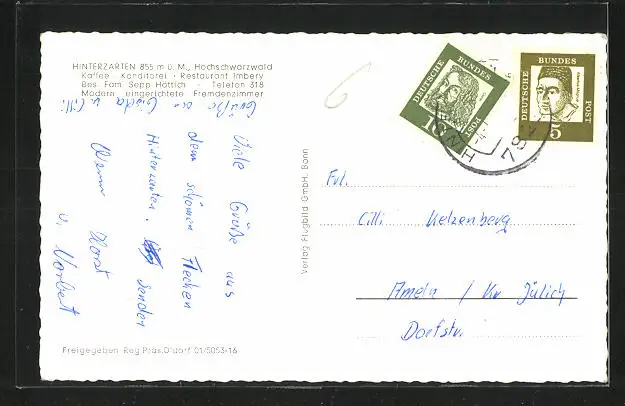 HINTERZARTEN 855 m ü. M., Hochschwarzwald
Kaffee · Konditorei · Restaurant Imbery
Bes. Fam. Sepp Hättich · Telefon 318
Modern eingerichtete Fremdenzimmer
Grüße an Gerda u. Cilli
Viele Grüße aus
dem schönen Flecken
Hinterzarten. senden
Horst
u. Norbert
Freigegeben Reg. Präs. D'dorf 01/5053-16
Verlag Flugbild GmbH, Bonn
DEUTSCHE BUNDES POST
10
DEUTSCHE BUNDES POST
5
Frl.
Cilli Kelzenberg
Ameln / Kr Jülich
Dorfstr.